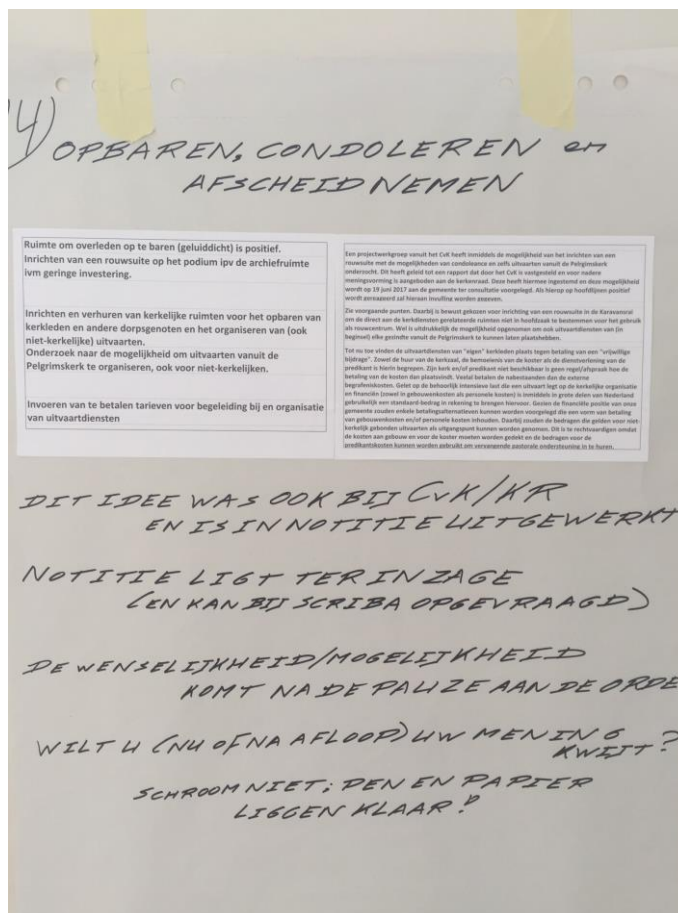 4) OPBAREN, CONDOLEREN en
AFSCHEID NEMEN
Ruimte om overleden op te baren (geluiddicht) is positief.
Inrichten van een rouwsuite op het podium ipv de archiefruimte
ivm geringe investering.
Inrichten en verhuren van kerkelijke ruimten voor het opbaren van
kerkleden en andere dorpsgenoten en het organiseren van (ook
niet-kerkelijke) uitvaarten.
Onderzoek naar de mogelijkheid om uitvaarten vanuit de
Pelgrimskerk te organiseren, ook voor niet-kerkelijken.
Invoeren van te betalen tarieven voor begeleiding bij en organisatie
van uitvaartdiensten
Een projectwerkgroep vanuit het CvK heeft inmiddels de mogelijkheid van het inrichten van een
rouwsuite met de mogelijkheden van condoleance en zelfs uitvaarten vanuit de Pelgrimskerk
onderzocht. Dit heeft geleid tot een rapport dat door het CvK is vastgesteld en voor nadere
meningsvorming is aangeboden aan de kerkenraad. Deze heeft hiermee ingestemd en deze mogelijkheid
wordt op 19 juni 2017 aan de gemeente ter consultatie voorgelegd. Als hierop op hoofdlijnen positief
wordt gereageerd zal hieraan invulling worden gegeven.
Zie voorgaande punten. Daarbij is bewust gekozen voor inrichting van een rouwsuite in de Karavanzaal
om de direct aan de kerkdiensten gerelateerde ruimten niet in hoofdzaak te bestemmen voor het gebruik
als rouwcentrum. Wel is uitdrukkelijk de mogelijkheid opgenomen om ook uitvaartdiensten van (in
beginsel) elke gezindte vanuit de Pelgrimskerk te kunnen laten plaatshebben.
Tot nu toe vinden de uitvaartdiensten van "eigen" kerkleden plaats tegen betaling van een "vrijwillige
bijdrage". Zowel de huur van de kerkzaal, de bemoeienis van de koster als de dienstverlening van de
predikant is hierin begrepen. Zijn kerk en/of predikant niet beschikbaar is geen regel/afspraak hoe de
betaling van de kosten dan plaatsvindt. Veelal betalen de nabestaanden dan de externe
begrafeniskosten. Gelet op de behoorlijk intensieve last die een uitvaart legt op de kerkelijke organisatie
en financiën (zowel in gebouwenkosten als personele kosten) is inmiddels in grote delen van Nederland
gebruikelijk een standaard bedrag in rekening te brengen hiervoor. Gezien de financiële positie van onze
gemeente zouden enkele betalingsalternatieven kunnen worden voorgelegd die een vorm van betaling
van gebouwenkosten en/of personele kosten inhouden. Daarbij zouden de bedragen die gelden voor niet-
kerkelijk gebonden uitvaarten als uitgangspunt kunnen worden genomen. Dit is te rechtvaardigen omdat
de kosten aan gebouw en voor de koster moeten worden gedekt en de bedragen voor de
predikantskosten kunnen worden gebruikt om vervangende pastorale ondersteuning in te huren.
DIT IDEE WAS OOK BIJ CvK/KR
EN IS IN NOTITIE UITGEWERKT
NOTITIE LIGT TER INZAGE
(EN KAN BIJ SCRIBA OPGEVRAAGD)
DE WENSELIJKHEID/MOGELIJKHEID
KOMT NA DE PAUZE AAN DE ORDE
WILT U (NU OF NA AFLOOP) UW MENING
KWIJT?
SCHROOM NIET; PEN EN PAPIER
LIGGEN KLAAR!